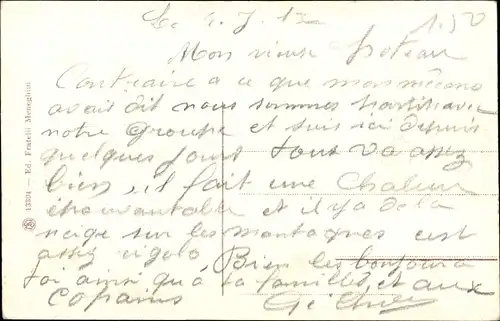 Le 4. J. 12
1.50
Mon vieux
Contraire a ce que
avait dit nous sommes partit avec
notre Groupe et suis ici depuis
quelques jours tous va assez
bien, il fait une Chaleur
épouvantable et il y a de la
neige sur les montagnes c'est
assez rigolo Bien les bonjours a
toi ainsi qu'à ta famille, et aux
copains
13324 - Ed. Fratelli Meneghini